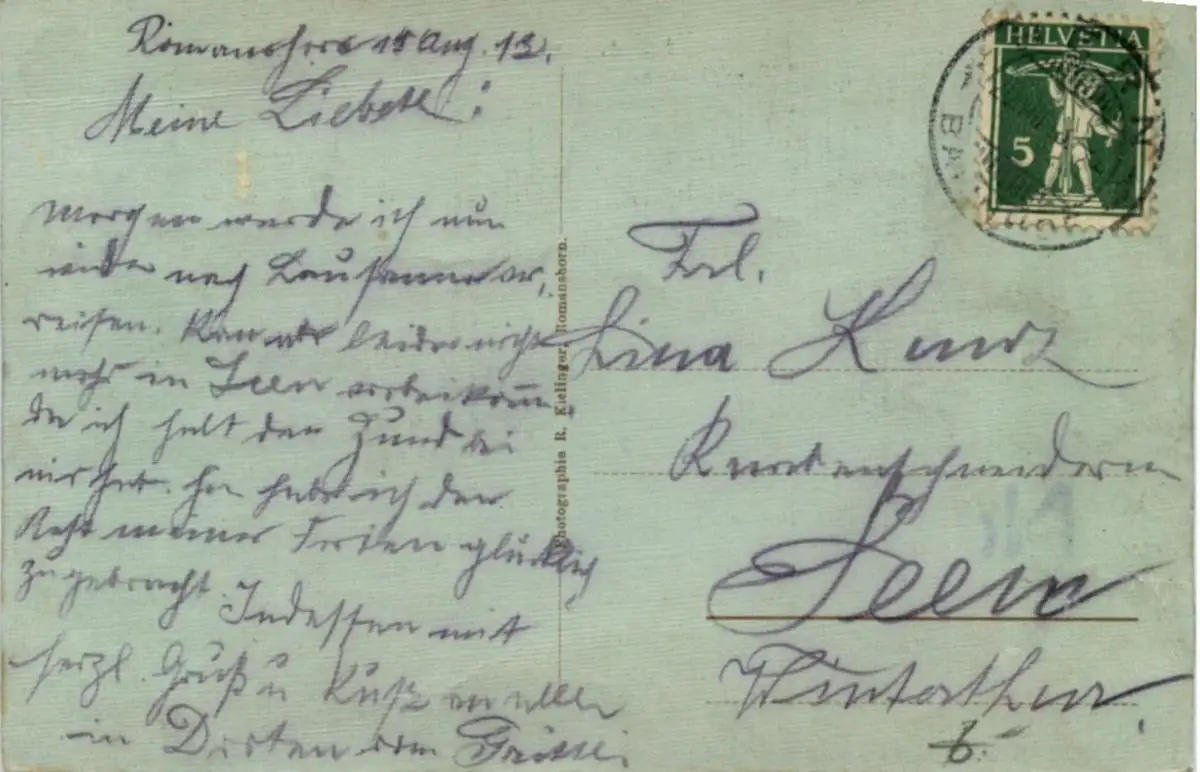 Romanshorn 18 Aug. 13.
Meine Liebste!
Morgen werde ich nun
wieder nach Lausanne ver-
reisen. Kan also leider nicht
mehr in Seen vorbeikomm.
da ich halt den Hund bei
mir
habe ich den
Rest meiner Ferien glücklich
zugebracht. Indessen mit
herzl. Gruß u Kuß an alle
in Dorten vom
Photographie R. Kielinger, Romanshorn.
HELVETIA
5
Frl.
Lina Kunz
Seen
Winterthur